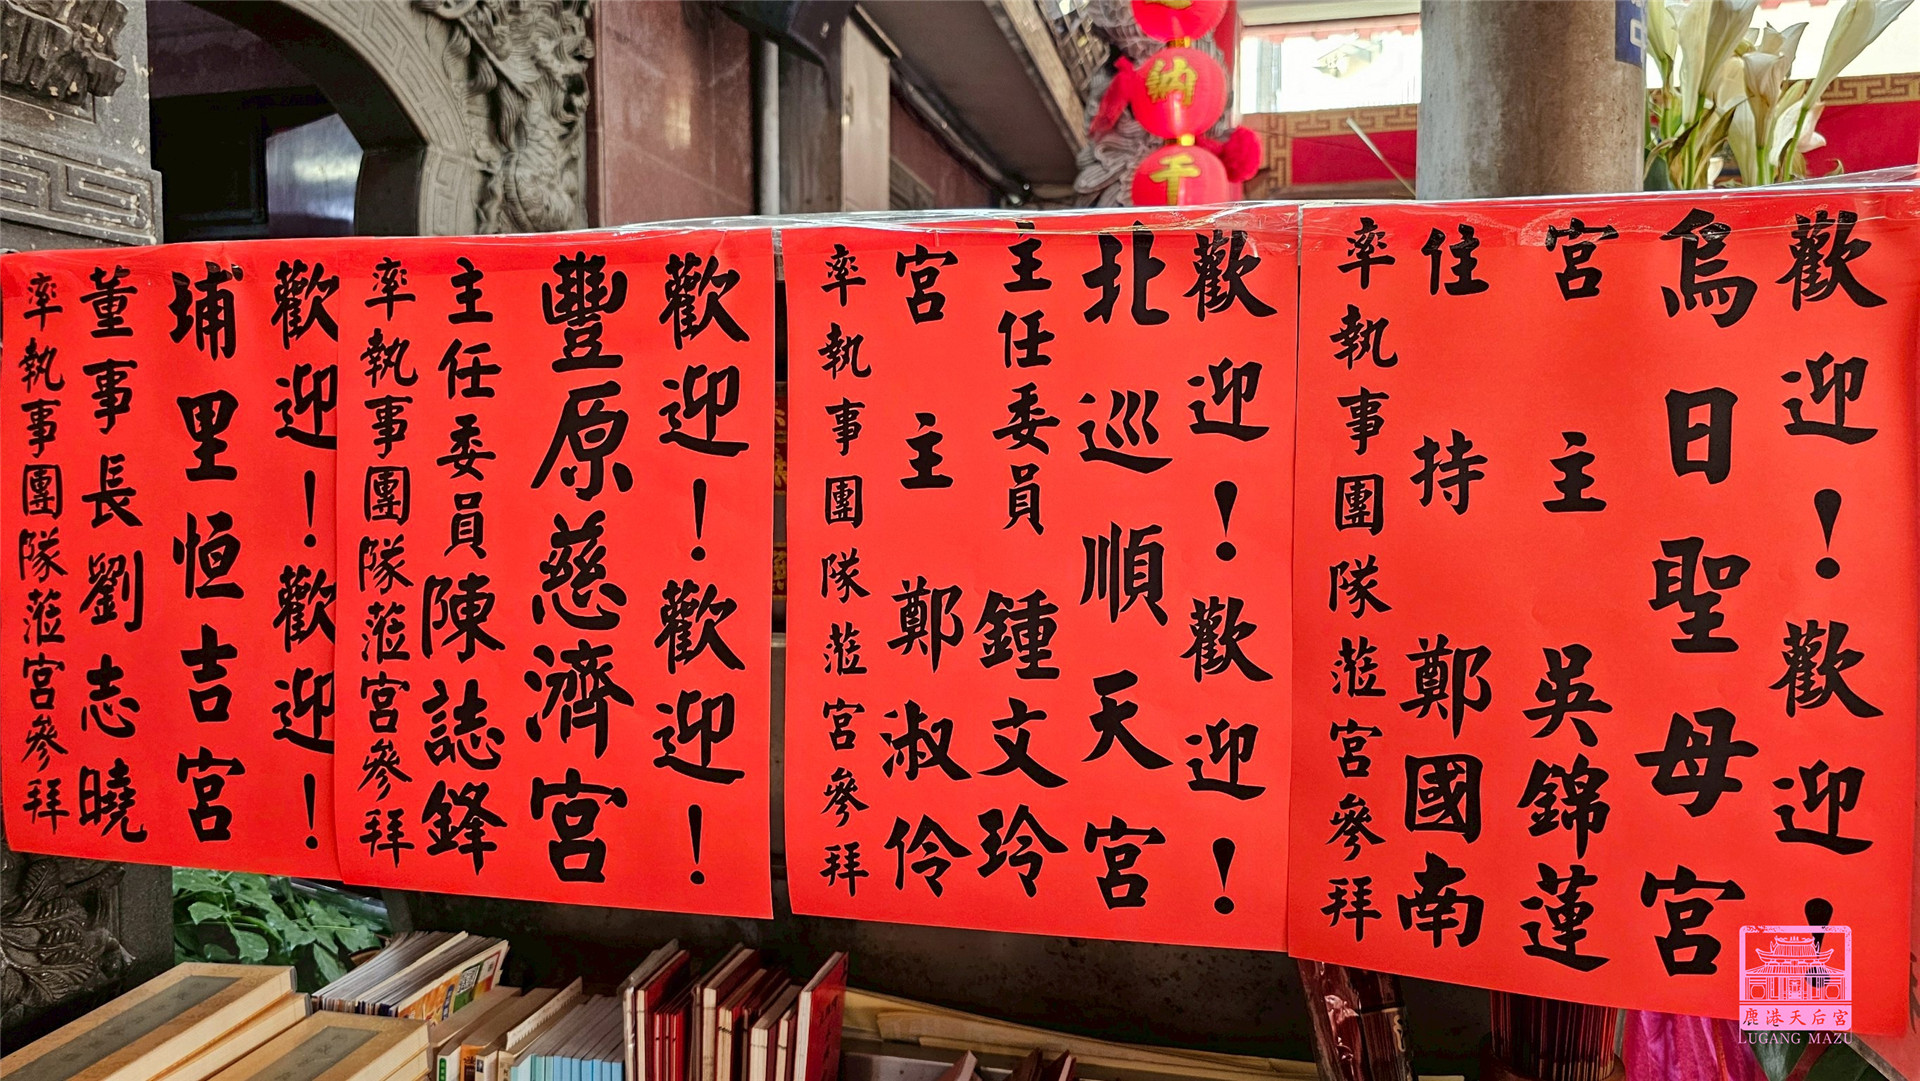 歡迎！歡迎！
烏日聖母宮
宮主 吳錦蓮
住持 鄭國南
率執事團隊蒞宮參拜
歡迎！歡迎！
北巡順天宮
主任委員 鍾文玲
宮主 鄭淑伶
率執事團隊蒞宮參拜
歡迎！歡迎！
豐原慈濟宮
主任委員陳誌鋒
率執事團隊蒞宮參拜
歡迎！歡迎！
埔里恒吉宮
董事長劉志曉
率執事團隊蒞宮參拜
納
千
鹿港天后宮
LUGANG MAZU